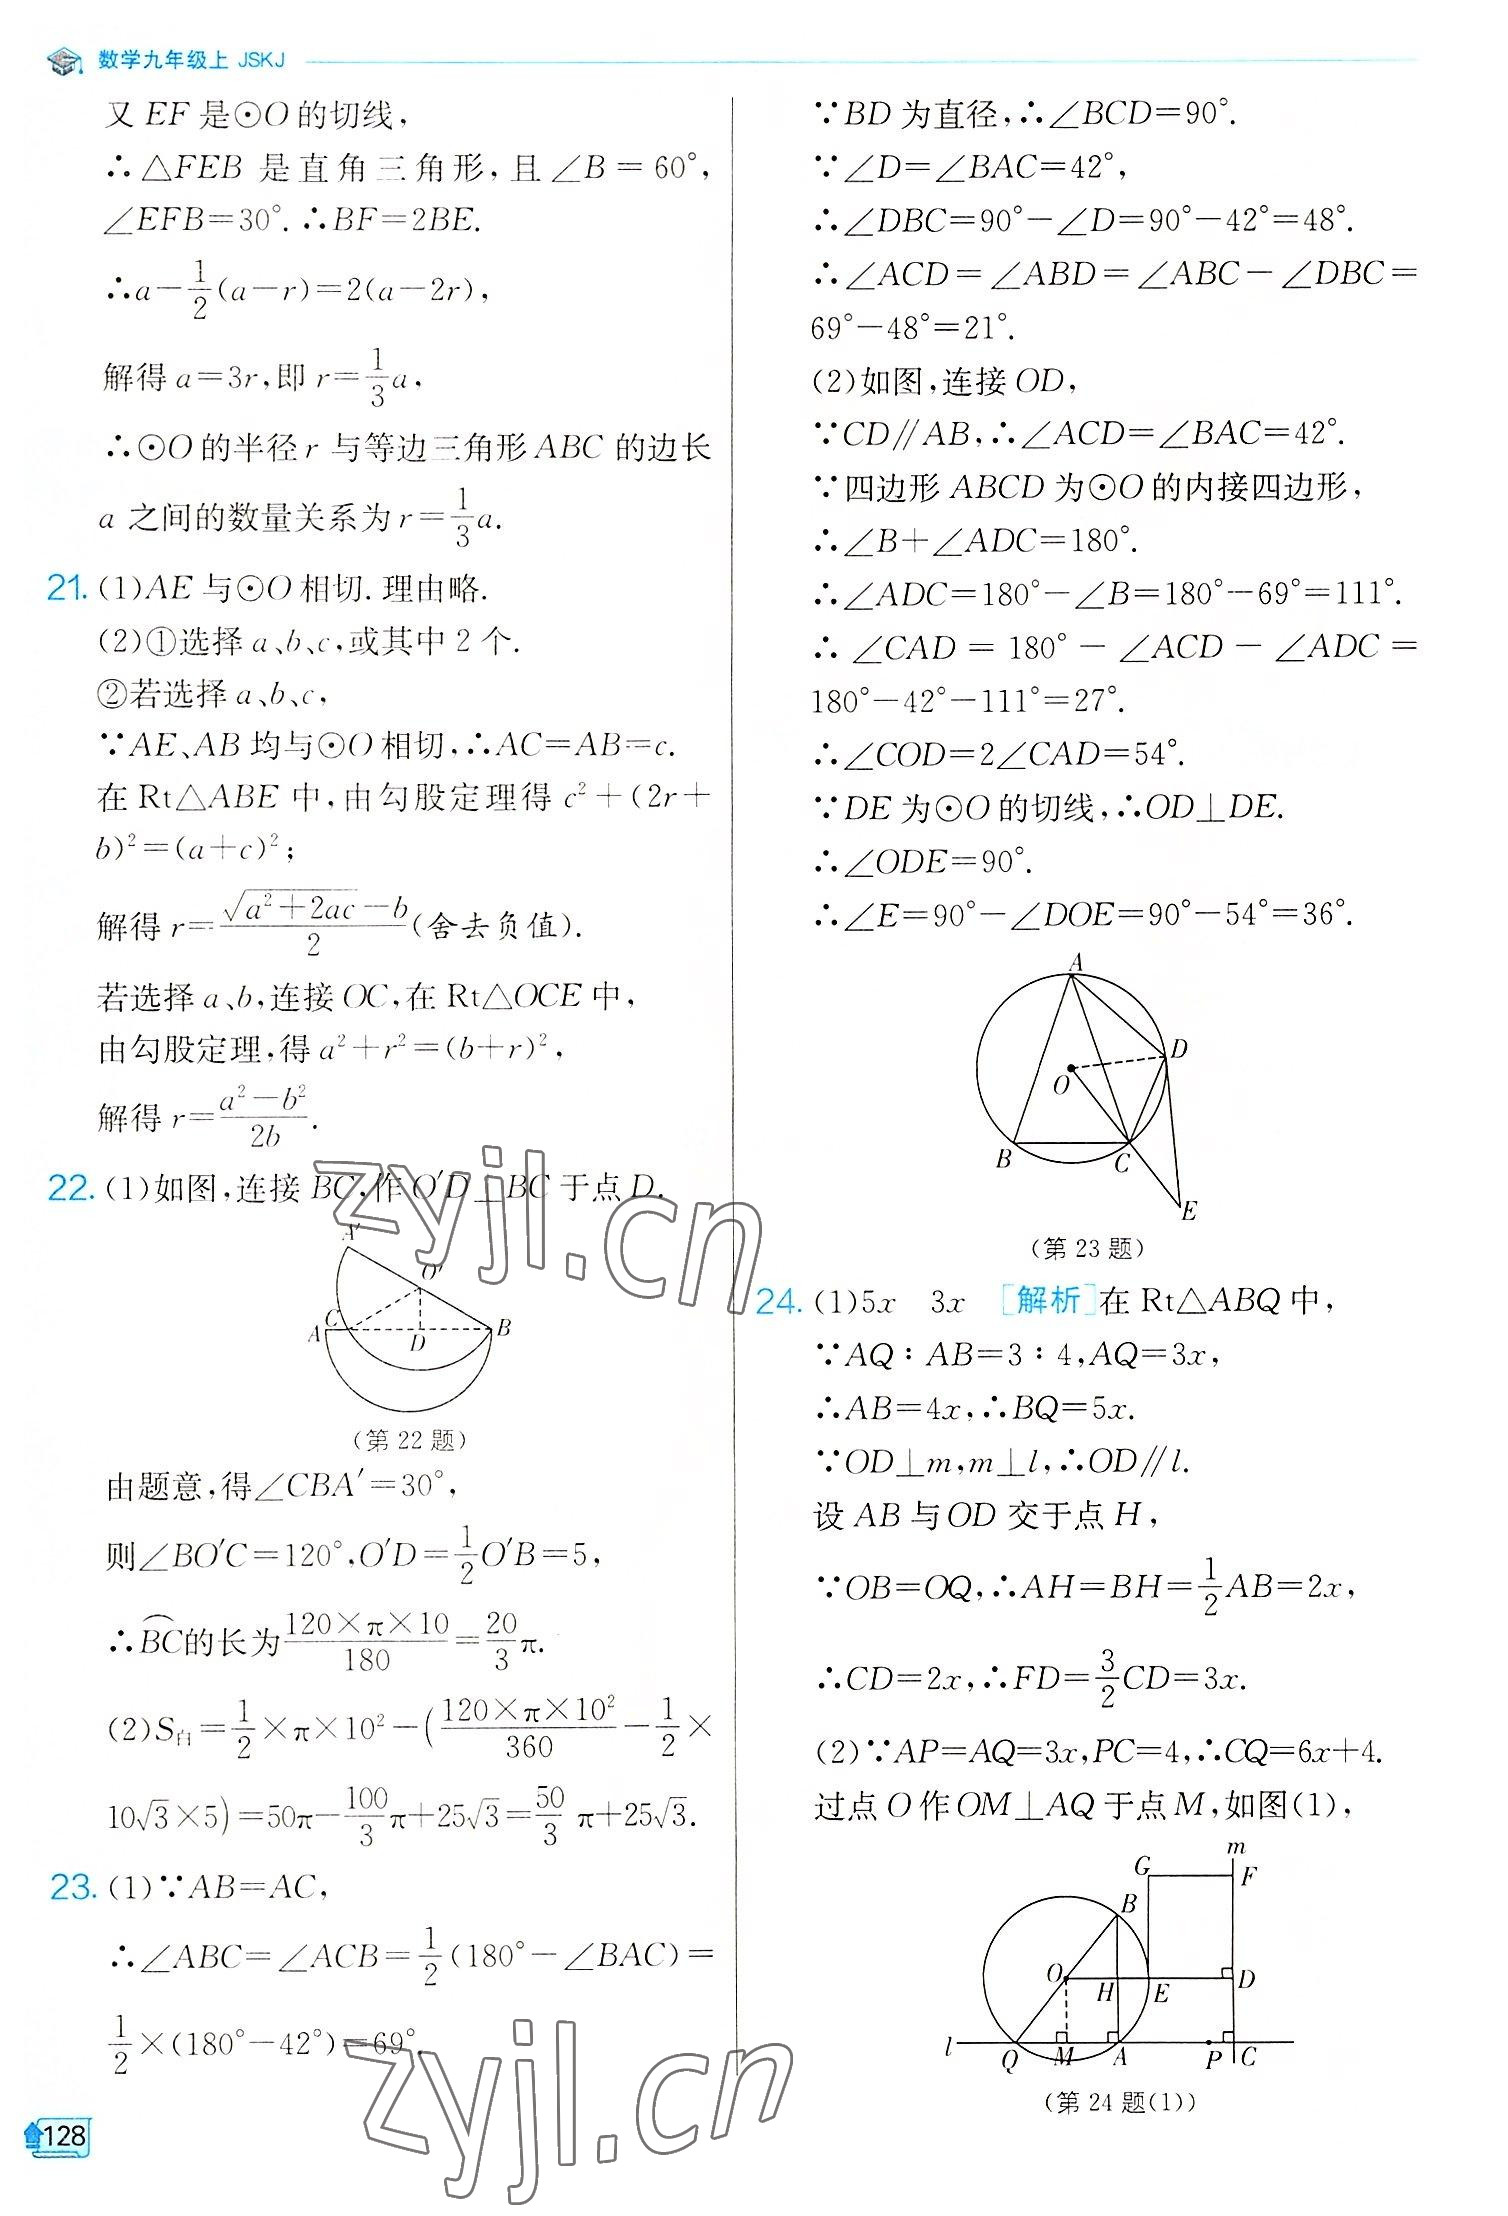 数学九年级上 JSKJ
又 EF 是⊙O 的切线,
∴△FEB 是直角三角形,且∠B=60°,
∠EFB=30°.∴BF=2BE.
∴a-1/2(a-r)=2(a-2r),
解得 a=3r,即 r=1/3a,
∴⊙O 的半径 r 与等边三角形 ABC 的边长
a 之间的数量关系为 r=1/3a.
21. (1)AE 与⊙O 相切.理由略.
(2)①选择 a、b、c,或其中 2 个.
②若选择 a、b、c,
∵AE、AB 均与⊙O 相切,∴AC=AB=c.
在 Rt△ABE 中,由勾股定理得 c²+(2r+
b)²=(a+c)²;
解得 r=(√(a²+2ac)-b)/2(舍去负值).
若选择 a、b,连接 OC,在 Rt△OCE 中,
由勾股定理,得 a²+r²=(b+r)²,
解得 r=(a²-b²)/2b.
22. (1)如图,连接 BC,作 O′D⊥BC 于点 D.
A′
O′
A C D B
(第 22 题)
由题意,得∠CBA′=30°,
则∠BO′C=120°,O′D=1/2O′B=5,
∴⌒BC的长为(120×π×10)/180=20/3π.
(2)S白=1/2×π×10²-((120×π×10²)/360-1/2×
10√3×5)=50π-100/3π+25√3=50/3 π+25√3.
23. (1)∵AB=AC,
∴∠ABC=∠ACB=1/2(180°-∠BAC)=
1/2×(180°-42°)=69°.
128
∵BD 为直径,∴∠BCD=90°.
∵∠D=∠BAC=42°,
∴∠DBC=90°-∠D=90°-42°=48°.
∴∠ACD=∠ABD=∠ABC-∠DBC=
69°-48°=21°.
(2)如图,连接 OD,
∵CD∥AB,∴∠ACD=∠BAC=42°.
∵四边形 ABCD 为⊙O 的内接四边形,
∴∠B+∠ADC=180°.
∴∠ADC=180°-∠B=180°-69°=111°.
∴∠CAD=180°-∠ACD-∠ADC=
180°-42°-111°=27°.
∴∠COD=2∠CAD=54°.
∵DE 为⊙O 的切线,∴OD⊥DE.
∴∠ODE=90°.
∴∠E=90°-∠DOE=90°-54°=36°.
A
D
O
B C
E
(第 23 题)
24. (1)5x 3x [解析]在 Rt△ABQ 中,
∵AQ∶AB=3∶4,AQ=3x,
∴AB=4x,∴BQ=5x.
∵OD⊥m,m⊥l,∴OD∥l.
设 AB 与 OD 交于点 H,
∵OB=OQ,∴AH=BH=1/2AB=2x,
∴CD=2x,∴FD=3/2CD=3x.
(2)∵AP=AQ=3x,PC=4,∴CQ=6x+4.
过点 O 作 OM⊥AQ 于点 M,如图(1),
m
G F
B
O H E D
l Q M A P C
(第 24 题(1))
zyjl.cn
zyjl.cn